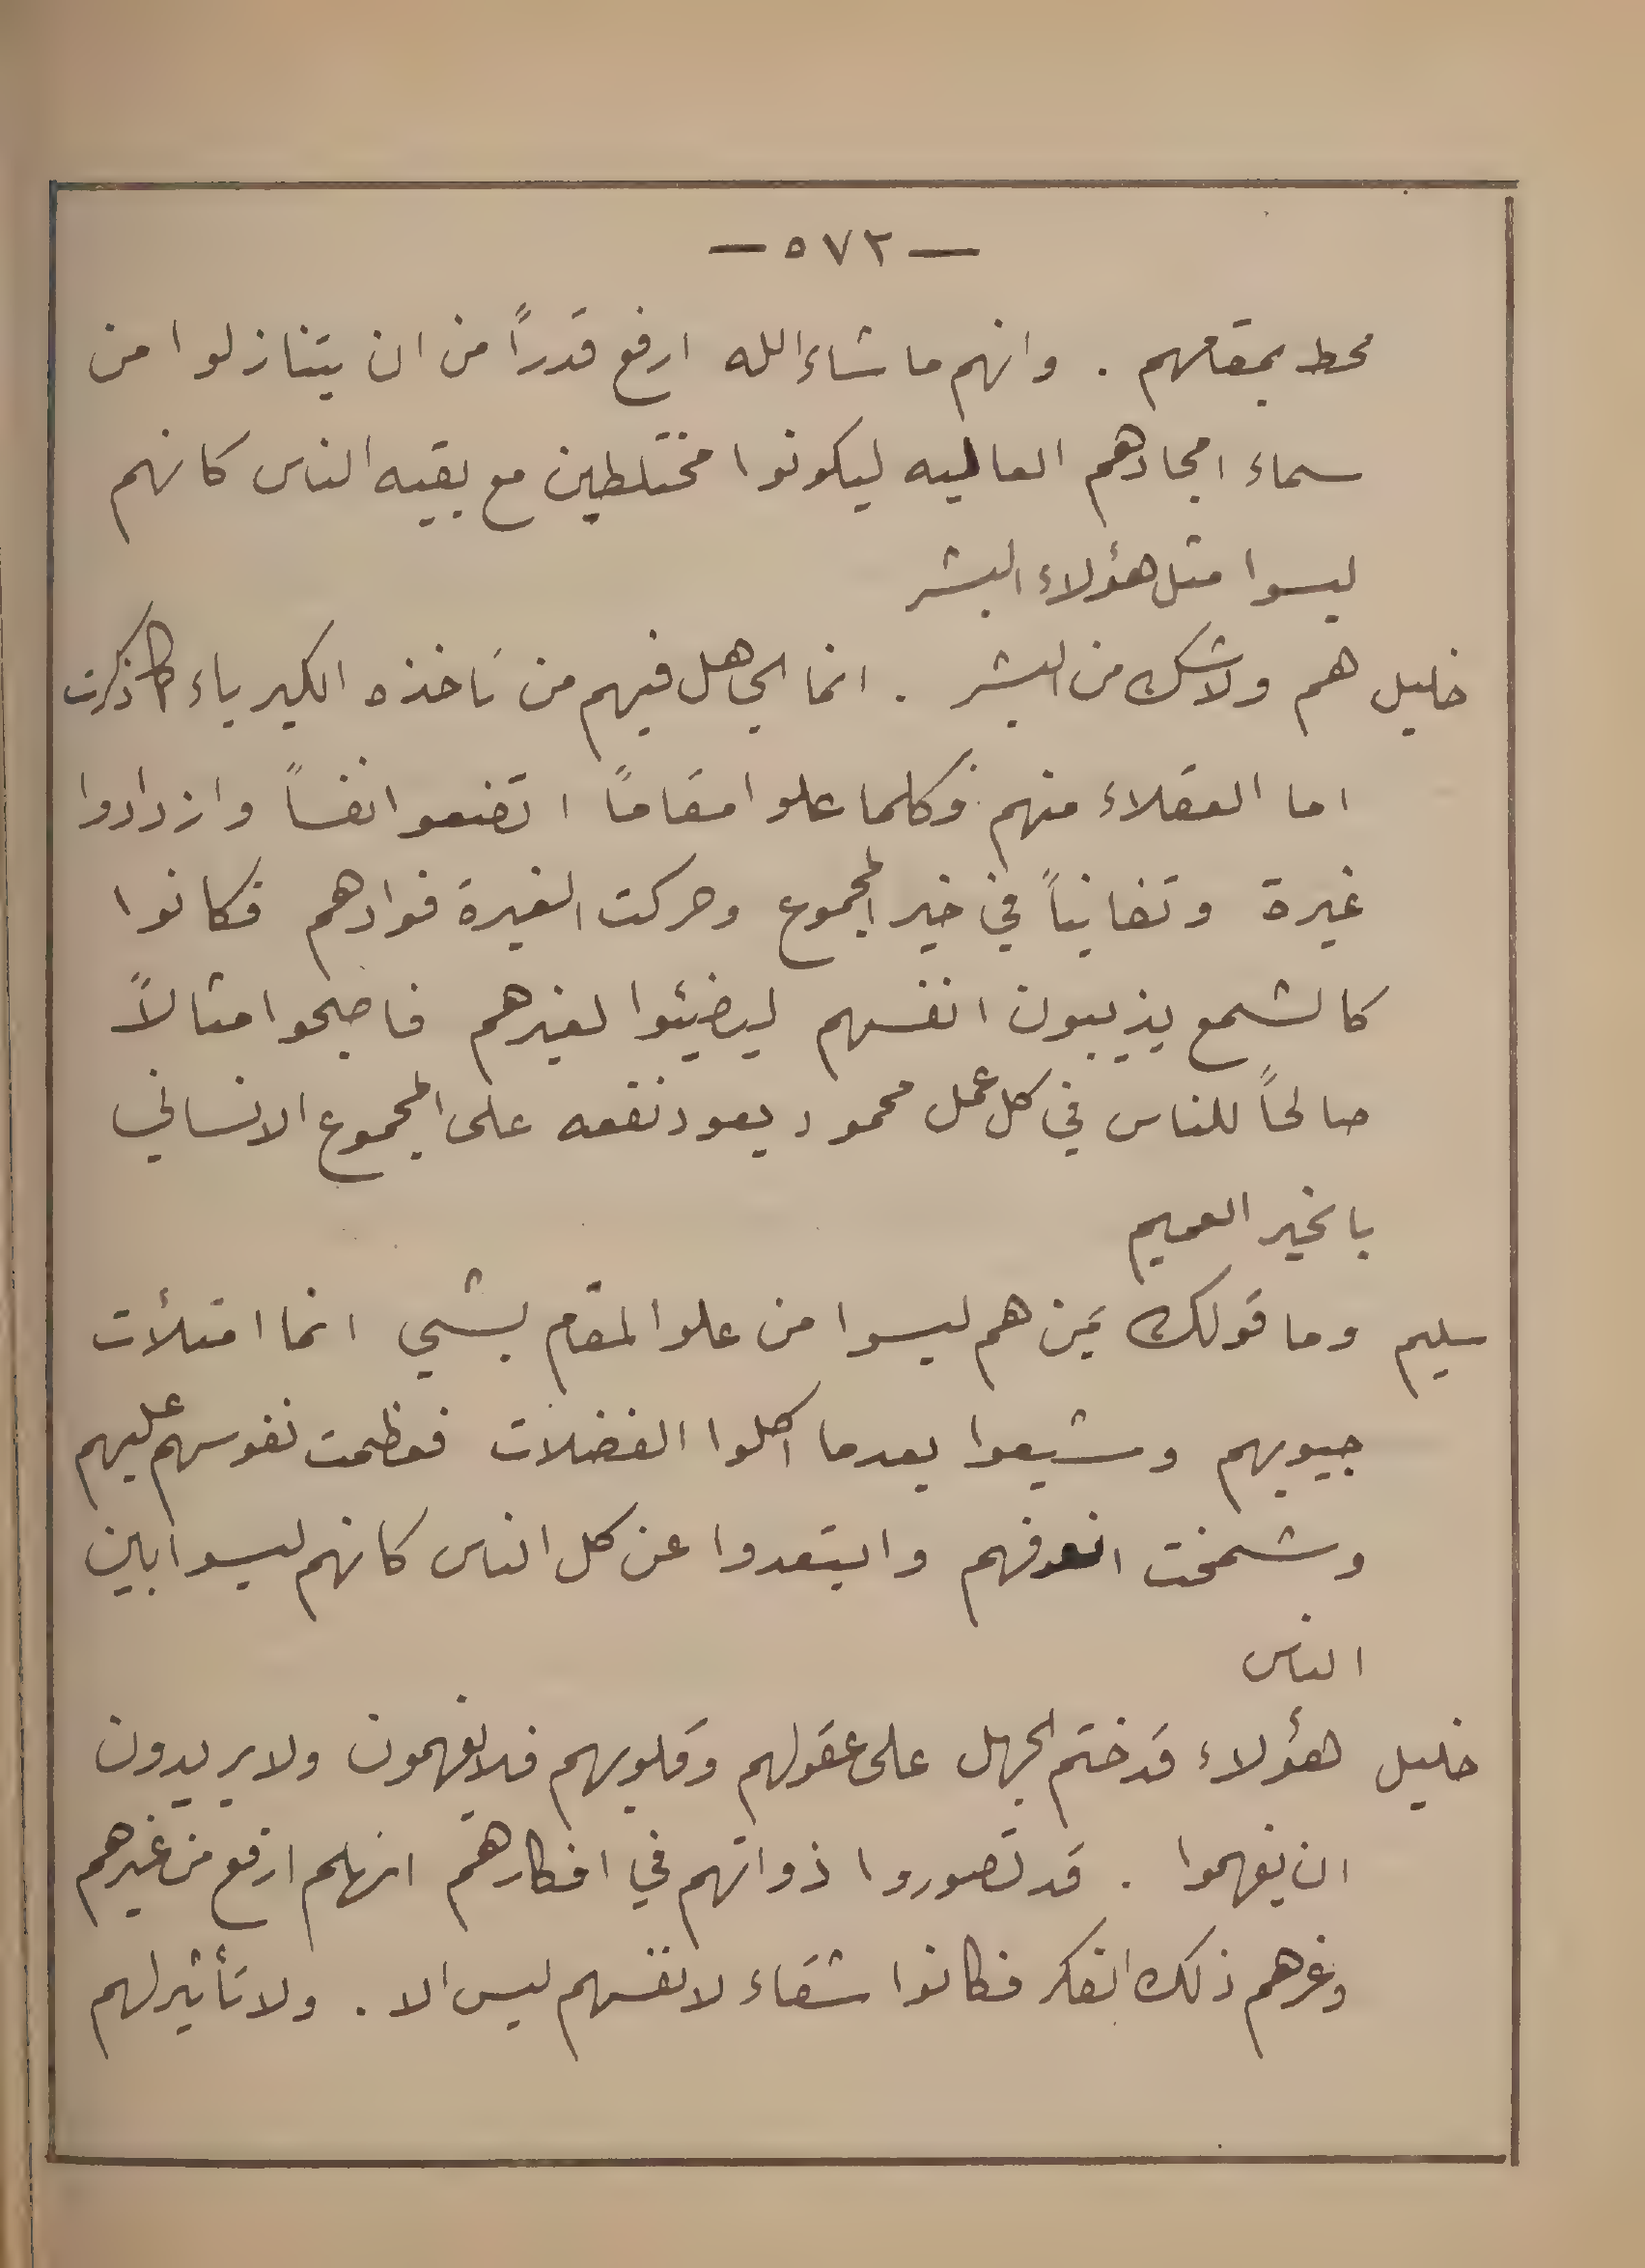 — ٥٧٢ —
محط بمقامهم . وانهم ماشاءالله ارفع قدراً من ان يتنازلوا من
سماء امجادهم العاليه ليكونوا مختلطين مع بقيه الناس كانهم
ليسوا مثل هؤلاء البشر
خليل هم ولاشك من البشر . انما الجاهل فيهم من تاخذه الكبرياء كما ذكرت
اما العقلاء منهم فكلما علوا مقاماً اتضعوا نفساً وازدادوا
غيرة وتفانياً في خير المجموع وحركت الغيرة فوادهم فكانوا
كالشمع يذيبون انفسهم ليضيئوا لغيرهم فاصبحوا مثالاً
صالحاً للناس في كل عمل محمود يعود نفعه على المجموع الانساني
بالخير العميم
سليم وما قولك بمن هم ليسوا من علو المقام بشي انما امتلأت
جيوبهم وشبعوا بعدما اكلوا الفضلات فعظمت نفوسهم عليهم
وشمخت انوفهم وابتعدوا عن كل الناس كانهم ليسوا بين
الناس
خليل هؤلاء قد ختم الجهل على عقولهم وقلوبهم فلا يفهمون ولا يريدون
ان يفهموا . قد تصوروا ذواتهم في افكارهم انهم ارفع من غيرهم
وغرهم ذلك الفكر فكانوا شقاء لانفسهم ليس الا . ولا تأثير لهم